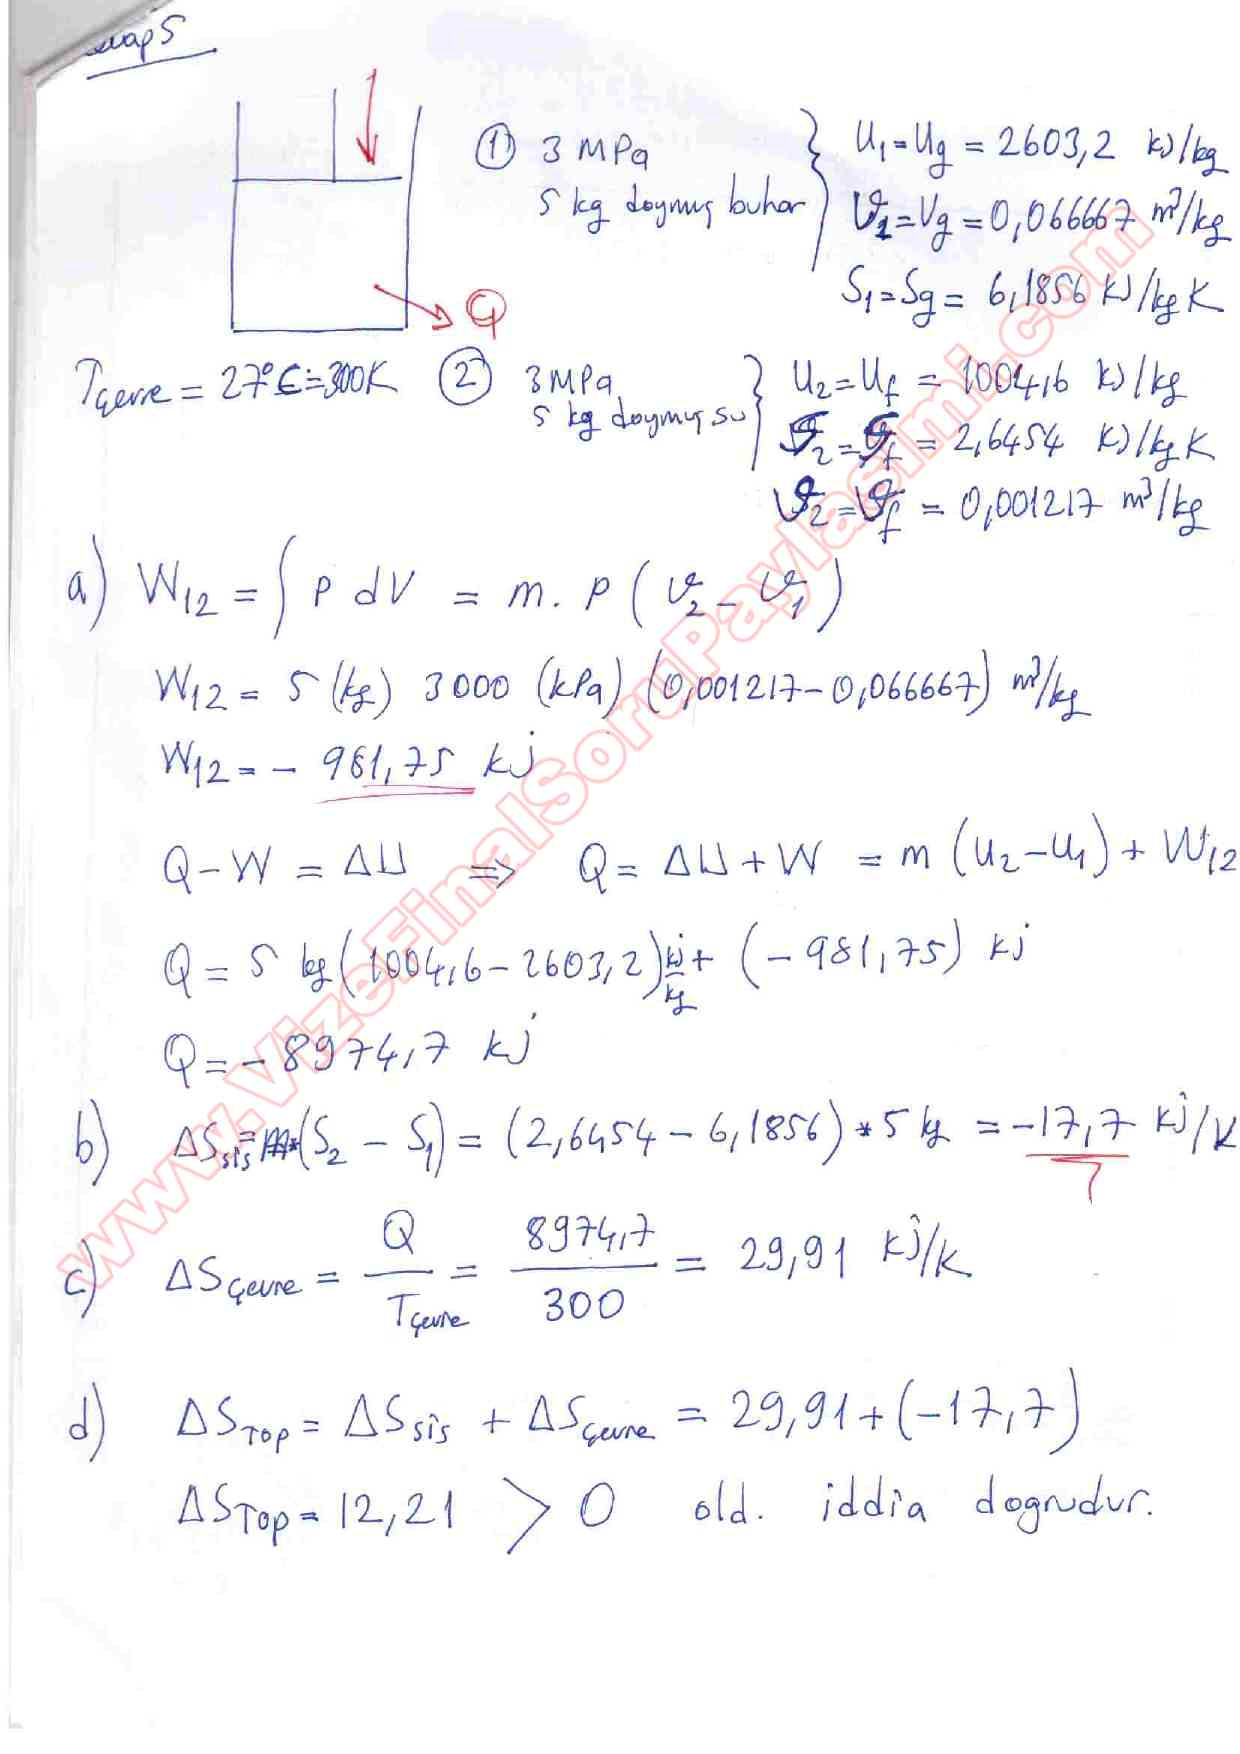 ① 3 MPa
5 kg doymuş buhar
u₁=ug = 2603,2 kJ/kg
v₁=vg = 0,066667 m³/kg
S₁=Sg = 6,1856 kJ/kg K
Tçevre = 27°C = 300K
② 3MPa
5 kg doymuş su
u₂=uf = 1004,6 kJ/kg
S₂=Sf = 2,6454 kJ/kg K
v₂=vf = 0,001217 m³/kg
Q
a) W₁₂ = ∫ P dV = m. P (v₂ - v₁)
W₁₂ = 5 (kg) 3000 (kPa) (0,001217-0,066667) m³/kg
W₁₂ = - 981,75 kj
Q - W = ΔU ⇒ Q = ΔU + W = m (u₂-u₁) + W₁₂
Q = 5 kg (1004,6 - 2603,2) kj/kg + (-981,75) kj
Q = - 8974,7 kj
b) ΔSsis = m*(S₂ - S₁) = (2,6454 - 6,1856) * 5 kg = -17,7 kj/K
c) ΔSçevre = Q/Tçevre = 8974,7/300 = 29,91 kj/K
d) ΔSTOP = ΔSsis + ΔSçevre = 29,91 + (-17,7)
ΔSTOP = 12,21 > 0 old. iddia dogrudur.
www.VizeFinalSoruPaylasimi.com